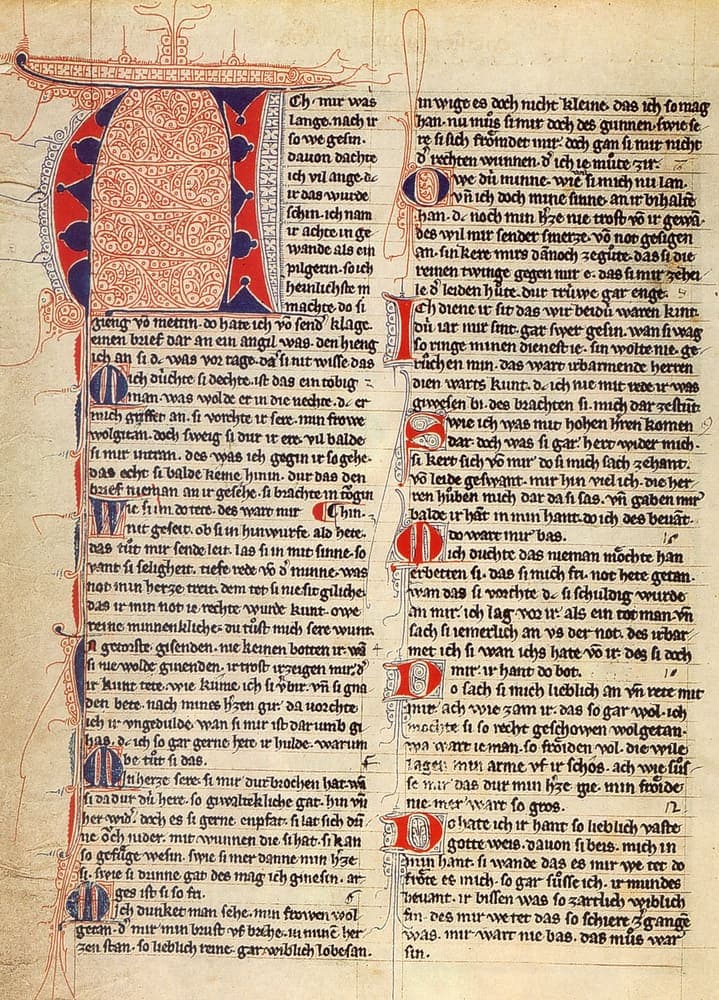 Ch mir was
lange nach ir
so we gesin·
dauon dachte
ich vil ange dc
ir das wurde
schin· ich nam
ir achte in ge
wande als ein
pilgerin· so ich
heinlichste in
machte do si
gieng vō mettin· do hate ich vō send klage
einen brief dar an ein angil was· den hieng
ich an si dc was vor tage· da si nit wisse das
Mich dv̂chte si dechte· ist das ein tobig
man· was wolde er in die nechte· dc er
mich griffet an· si vorchte ir sere· min frowe
wolgitan· doch sweig si dur ir ere· vil balde
si mir intran· des was ich gegin ir so gehe·
das echt si balde keme hinin· dur das den
brief nieman an ir gesehe· si brachte in togin
Wie si im do tete· des wart mir hin·
nit geseit· ob si in hinwurfe· ald hete·
das tůt mir sende leit· las si in mit sinne· so
vant si seligheit· tiefe rede vō d minne· was
not min herze treit· dem tet si nie sit gliche·
das ir min not ie rechte wurde kunt· owe
reine minnenkliche· du tůst mich sere wunt
In getorste gisenden· nie keinen botten ir
si nie wolde ginenden· ir trost irzeigen mir d
ir kunt tete· wie kume ich si v̄bir· vn̄ si gna
den bete· nach mines hzen gir· da vorchte
ich ir vngedulde· wan si mir ist dar umb gi
has· dc ich so gar gerne hete ir hulde· warum
be tůt si das·
Min herze sere· si mir dur brochen hat wā
si da dur dv̂ here· so giwaltekliche gat· hin vn̄
her wid· doch es si gerne enpfat· si lat sich
ne ŏch nider· mit wunnen die si hat· si kan
so gefůge wesin· swie si mer danne min hze
si· swie si drinne gat des mag ich ginesin· ar
ges ist si so fri·
Mich dunket man sehe· min frowen wol
getan· d mir min brust vf breche· in minē her
zen stan· so lieblich reine· gar wiblich lobesan·
in wige es doch nicht kleine· das ich so mag
han· nu můs si mir doch des gunnen· swie se
re si sich frŏmdet mir· doch gan si mir nicht
d rechten wunnen· d ich ie můte zir·
Owe dv̂ minne· wie si mich nu lan·
vn̄ ich doch mine sinne· an ir bihaltē
han· dc noch min hze nie trost vō ir gewā·
des wil mir sender smerze· vō not gesigen
an· sin kere mirs dānoch ze gůte· das si die
reinen twinge gegen mir e· das si mir zehei
le d leiden hůte· dur trûwe gar enge·
Ich diene ir sit das wir beidû waren kint·
dû iar mir sint· gar swer gesin· wan si wag
so ringe minen dienest ie· sin wolte nie· ge
rûchen min· das wart irbarmende herren
dien warts kunt· dc ich nie mit rede ir was
giwesen bi· des brachten si mich dar zestunt
Swie ich was mit hohen hren komen
dar· doch was si gar hert wider mich·
si kert sich vō mir do si mich sach zehant·
vō leide geswant· mir hin viel ich· die her
ren hůben mich dar da si sas· vn̄ gaben mir
balde ir hāt in min hant· do ich des bevāt·
do wart mir bas·
Mich duchte das nieman mŏchte han
erbetten si· das si mich fri· not hete getan·
wan das si vorchte· dc si schuldig wurde
an mir· ich lag vor ir als ein tot man vn̄
sach si iemerlich an vs der not· des irbar
met ich si wan ichs hate vō ir· des si doch
mir· ir hant do bot·
Do sach si mich lieblich an vn̄ rete mit
mir· ach wie zam ir· das so gar wol· ich
mochte si so recht geschowen wolgetan·
wa wart ieman· so frŏiden vol· die wile
lagen min arme vf ir schos· ach wie sûs
se mir das dur min hze gie· min frŏide
nie mer wart so gros·
Do hate ich ir hant so lieblich vaste
gotte weis· dauon si beis· mich in
min hant· si wande das es mir we tet do
frŏte es mich· so gar sûsse ich· ir mundes
beuant· ir bissen was so zartlich wiblich
fin· des mir we tet das so schiere zgange
was· mir wart nie bas· das můs war
sin·